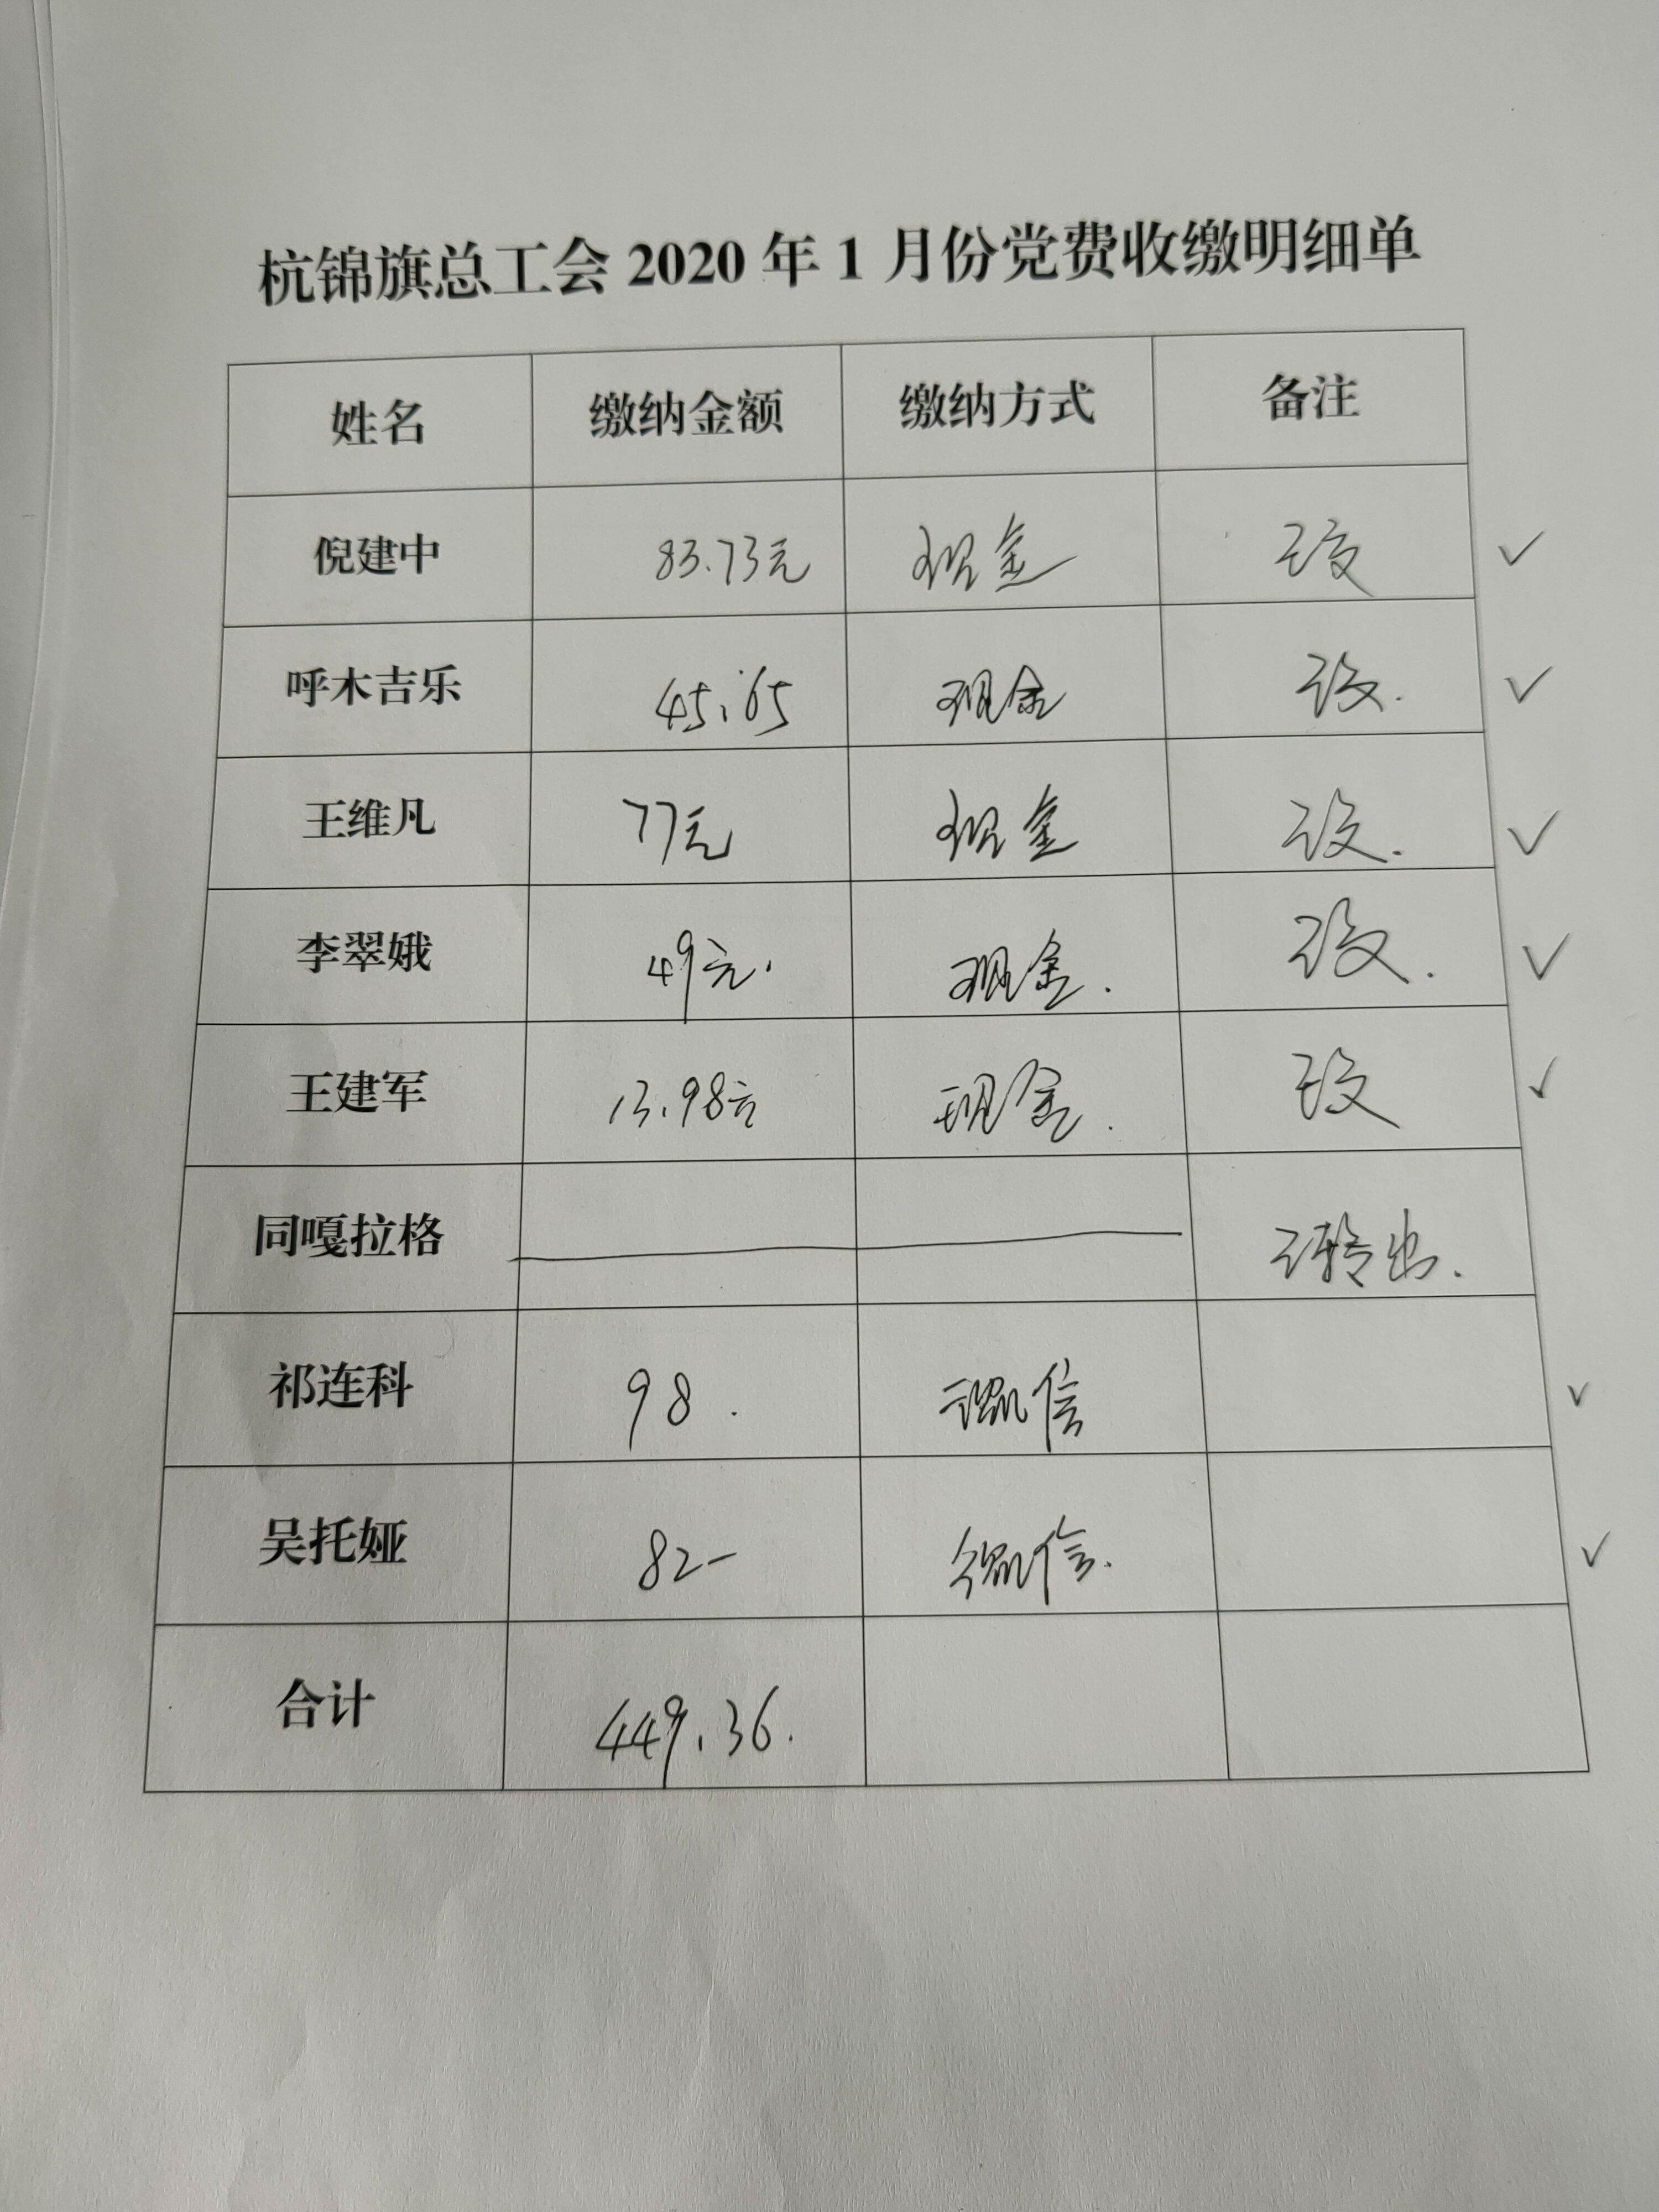 杭锦旗总工会 2020 年 1 月份党费收缴明细单
姓名 缴纳金额 缴纳方式 备注
倪建中 83.73元 现金 ✓
呼木吉乐 45.65 现金 ✓
王维凡 77元 现金 ✓
李翠娥 49元. 现金. ✓
王建军 13.98元 现金. ✓
同嘎拉格 转出.
祁连科 98. 微信 ✓
吴托娅 82- 微信. ✓
合计 449.36.